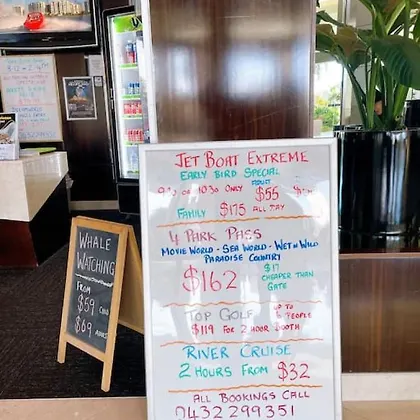 JET BOAT EXTREME
EARLY BIRD SPECIAL
ADULT
OR 1030 ONLY $55
FAMILY $175 ALL DAY
4 PARK PASS
MOVIE WORLD - SEA WORLD - WET N WILD
PARADISE COUNTRY
$162
$17
CHEAPER THAN
GATE
TOP GOLF UP TO
6 PEOPLE
$119 FOR 2 HOUR BOOTH
RIVER CRUISE
2 HOURS FROM $32
ALL BOOKINGS CALL
0432 299351
WHALE
WATCHING
FROM
$59 CHILD
$69